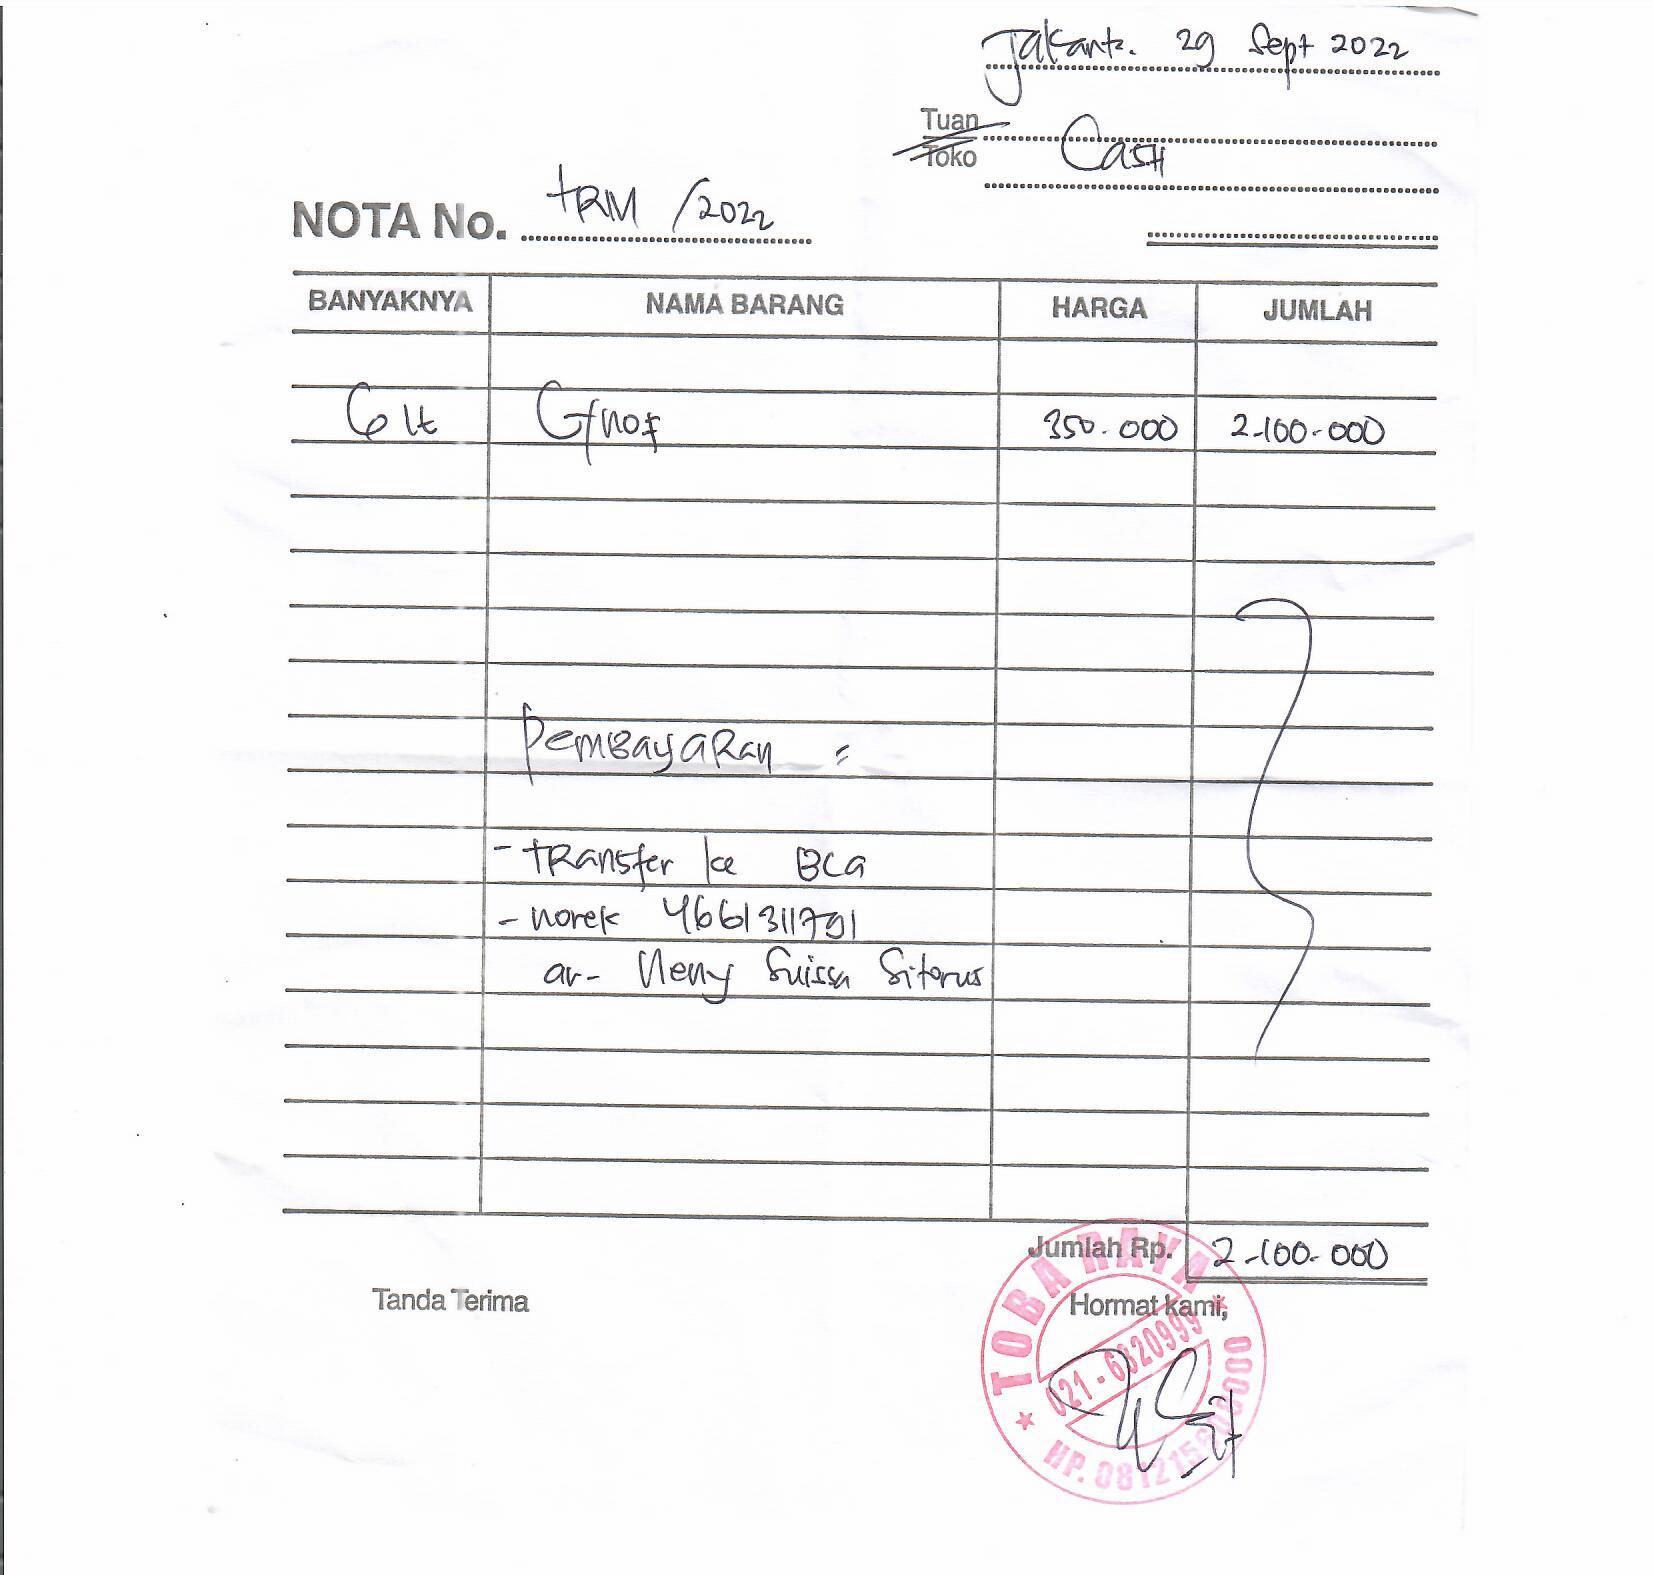 Jakarta. 29 Sept 2022
Tuan
Toko
Cash
NOTA No. TRM /2022
BANYAKNYA NAMA BARANG HARGA JUMLAH
6 lt 350.000 2.100.000
Pembayaran :
- Transfer ke BCA
- Norek 4661311791
an- Neny Suissa Sitorus
Jumlah Rp. 2.100.000
Tanda Terima Hormat kami,
TOBA RAYA
021-6820999
HP.